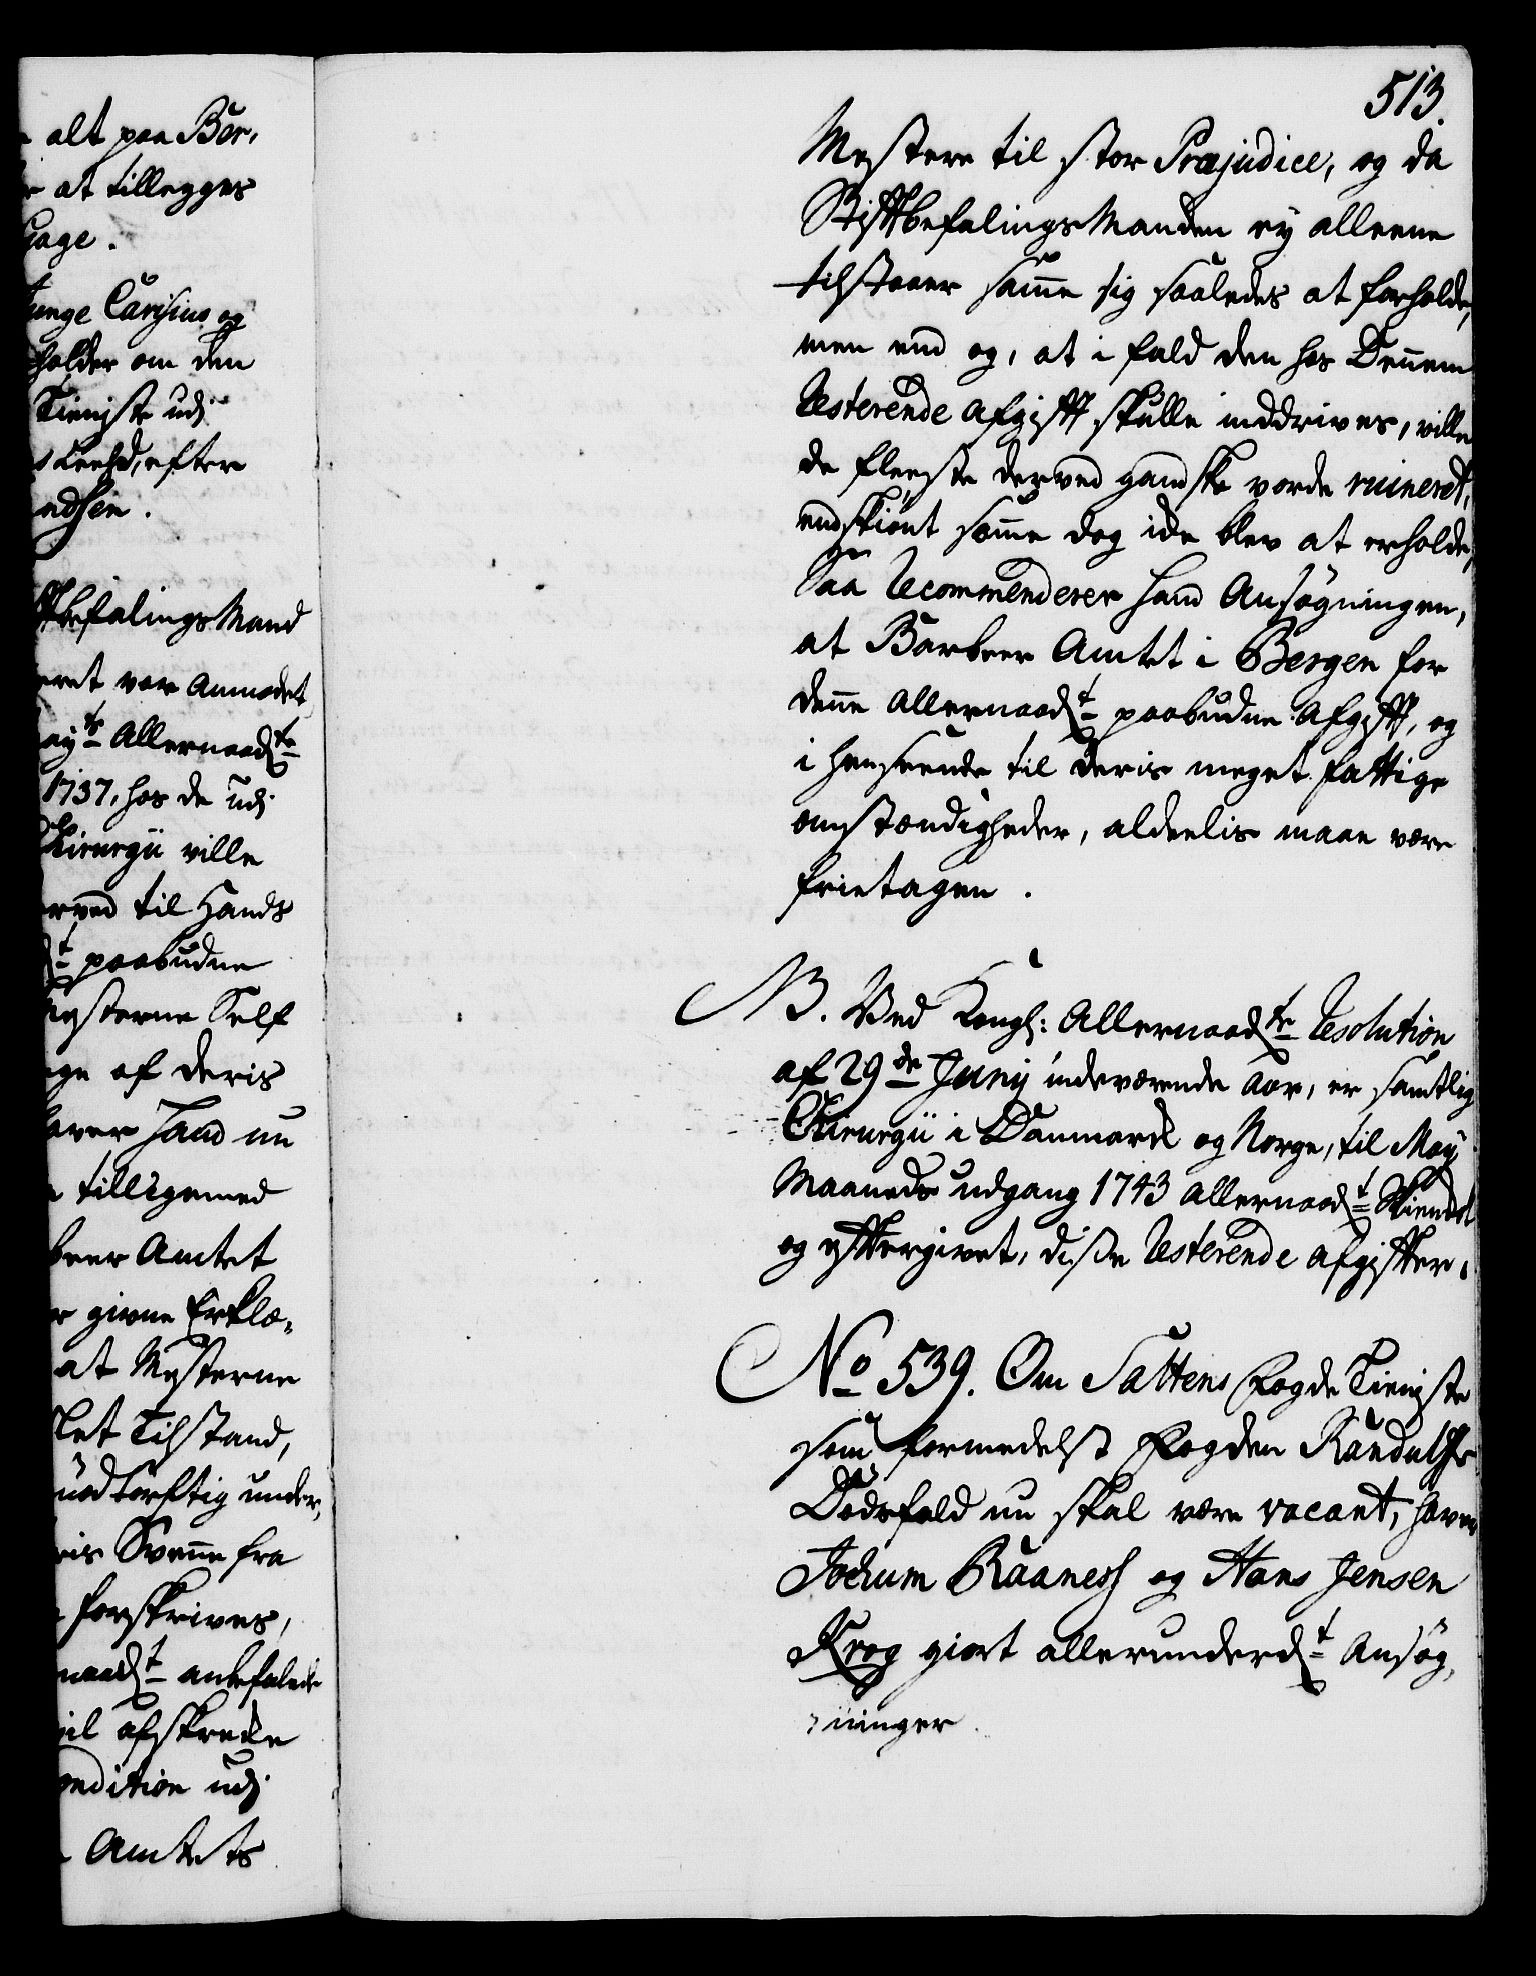 alt paa Ber,
at tillegges
Gage.
unge Carisius og
holder om den
Tieniste udj
efter
ndsen.
befalings Mand
eret var anmodet
Allernaadste
1737, hos de udj
Chirurgii ville
erved til Hands
paabudne
Mesterne Self
af deris
Hand nu
tilligemed
beer Amtet
givne Erklæ-
at Mesterne
slet Tilstand,
nødtørftig under,
ris Svenne fra
forskrives,
naadt anbefalede
afskrede
ondition udj
Amtets
513.
Mestere til stor Præjudice, og da
Stiftbefalings Manden ej alleene
tilstaaer samme sig saaledes at forholde,
men end og, at i fald den hos Dennem
Resterende afgift skulle inddrives, ville
de fleeste derved gandske vorde ruineret,
endskiønt samme dog icke blev at erholde,
Saa Recommenderer Hand Ansøgningen,
at Barbeer Amtet i Bergen for
denne allernaadt paabudne Afgift, og
i henseende til deris meget fattige
omstændigheder, aldeelis maae være
frietagen.
NB. Ved Kongl: Allernaadste Resolution
af 29de Junij indeværende Aar, er samtlig
Chirurgii i Danmark og Norge, til Maij
Maaneds udgang 1743 allernaadt Skiendet
og eftergivet, disse Resterende afgifter.
No 539. Om Saltens Fogde Tieniste
som formedelst Fogden Randulfs
Dødsfald nu skal være vacant, haver
Jochum Raanes og Hans Jensen
Krog giort allerunderdt Ansøg,
ninger